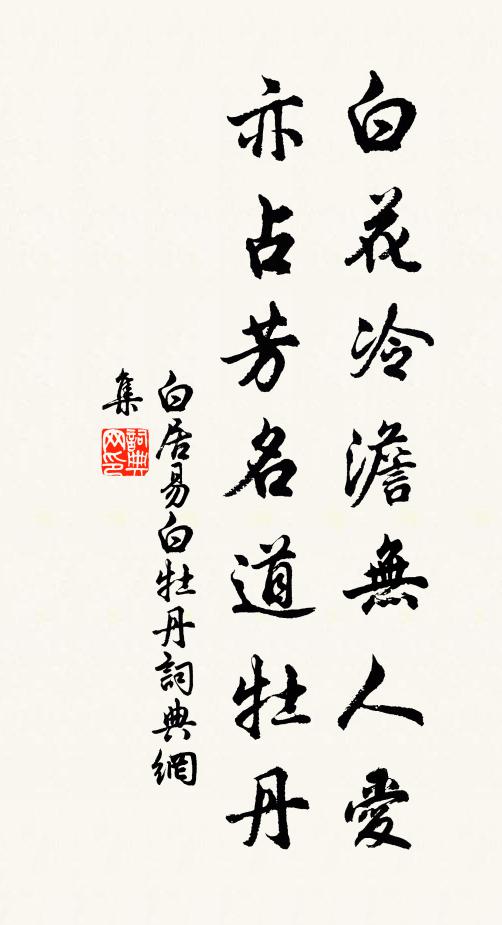 白花冷澹無人愛
亦占芳名道牡丹
白居易白牡丹詞典網
集
詞典
网印